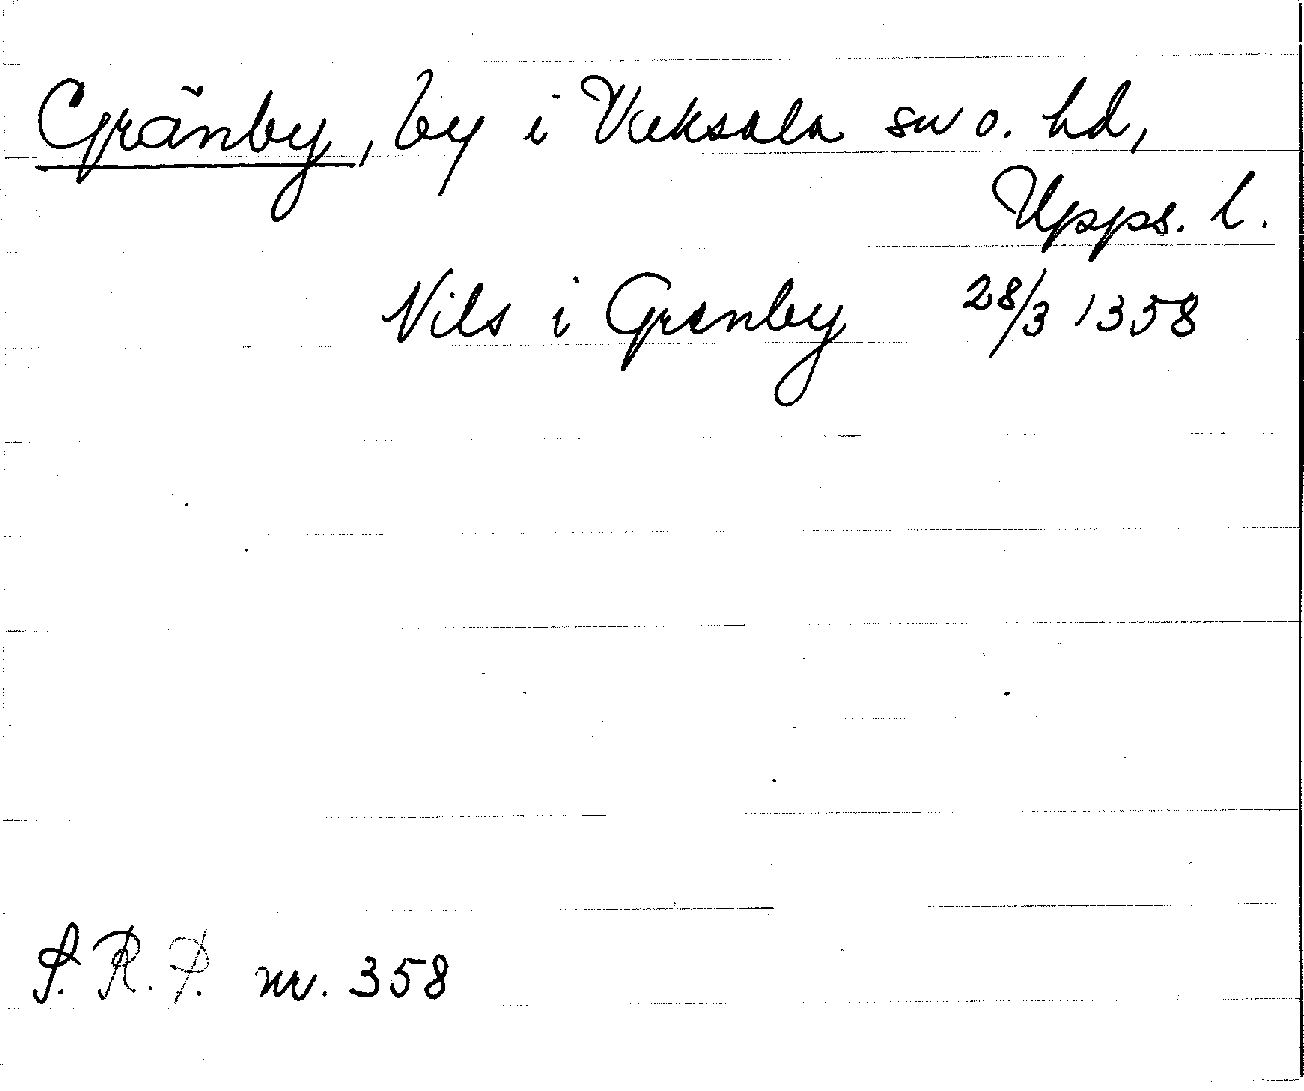 Gränby, by i Vaksala sn o. hd,
Upps. l.
Nils i Grenby 28/3 1358
S.R.P. nr. 358